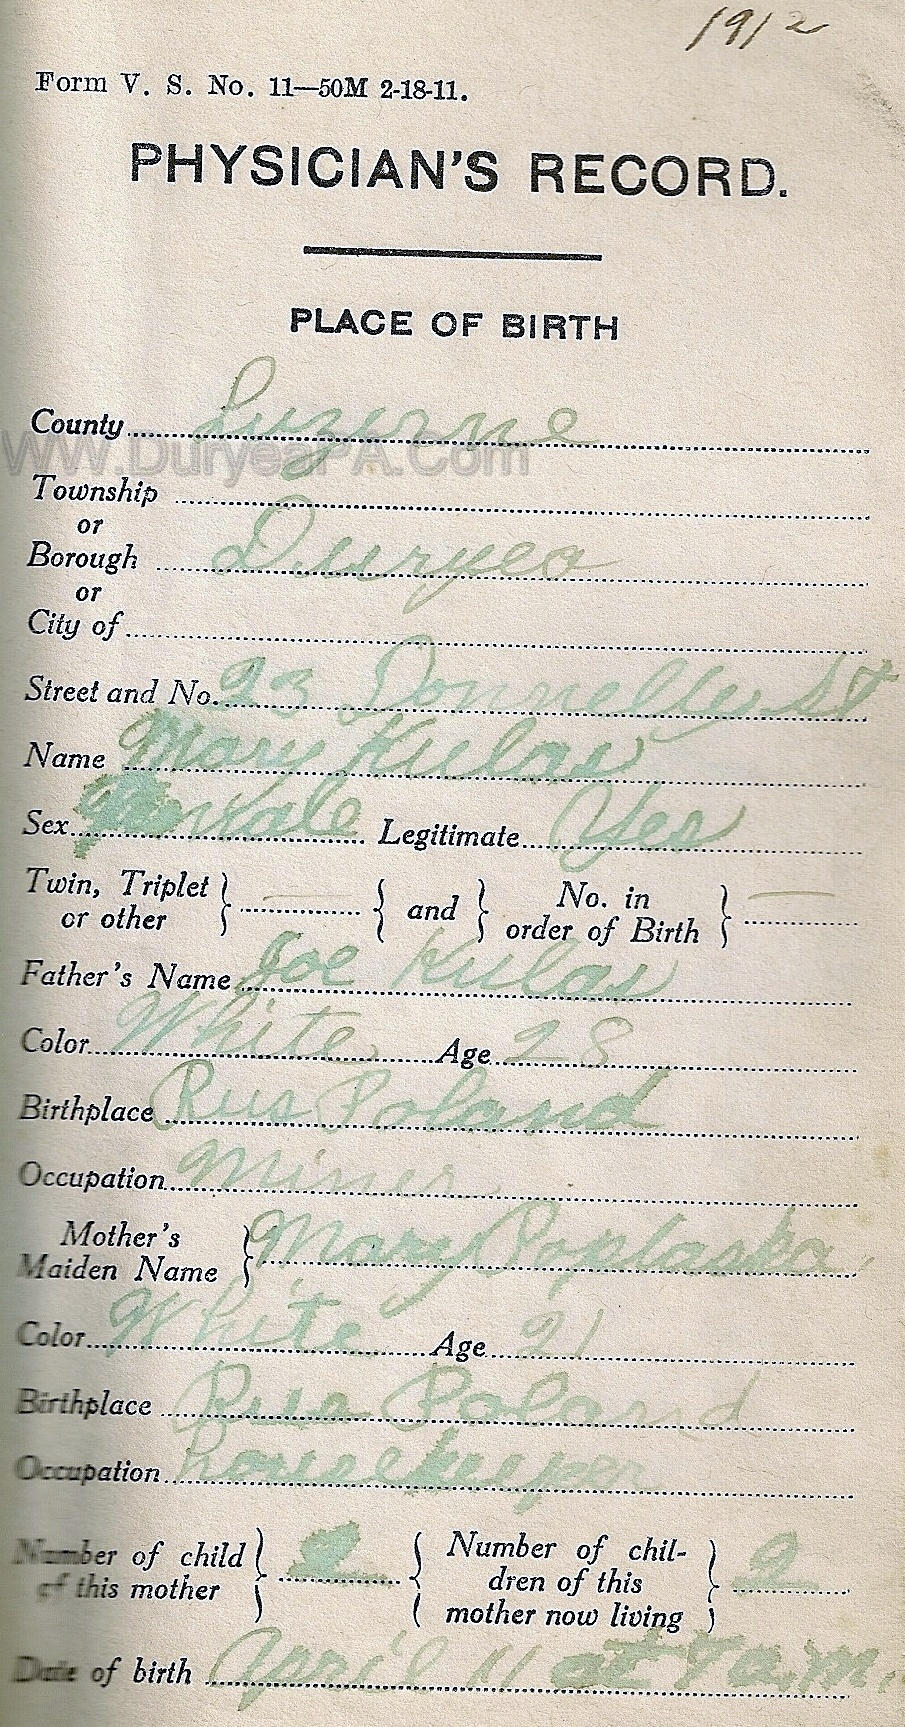 1912
Form V. S. No. 11—50M 2-18-11.
PHYSICIAN'S RECORD.
PLACE OF BIRTH
County Luzerne
www.DuryeaPA.Com
Township
or
Borough Duryea
or
City of
Street and No. 23 Donnelly St
Name Mary Kulas
Sex Legitimate Yes
Twin, Triplet or other } — { and } No. in order of Birth } —
Father's Name Joe Kulas
Color White Age 28
Birthplace Rus Poland
Occupation Miner
Mother's Maiden Name } Mary Poplaska
Color White Age 21
Birthplace Rus Poland
Occupation housekeeper
Number of child of this mother } 2 { Number of children of this mother now living } 2
Date of birth April 11 at 7 a.m.